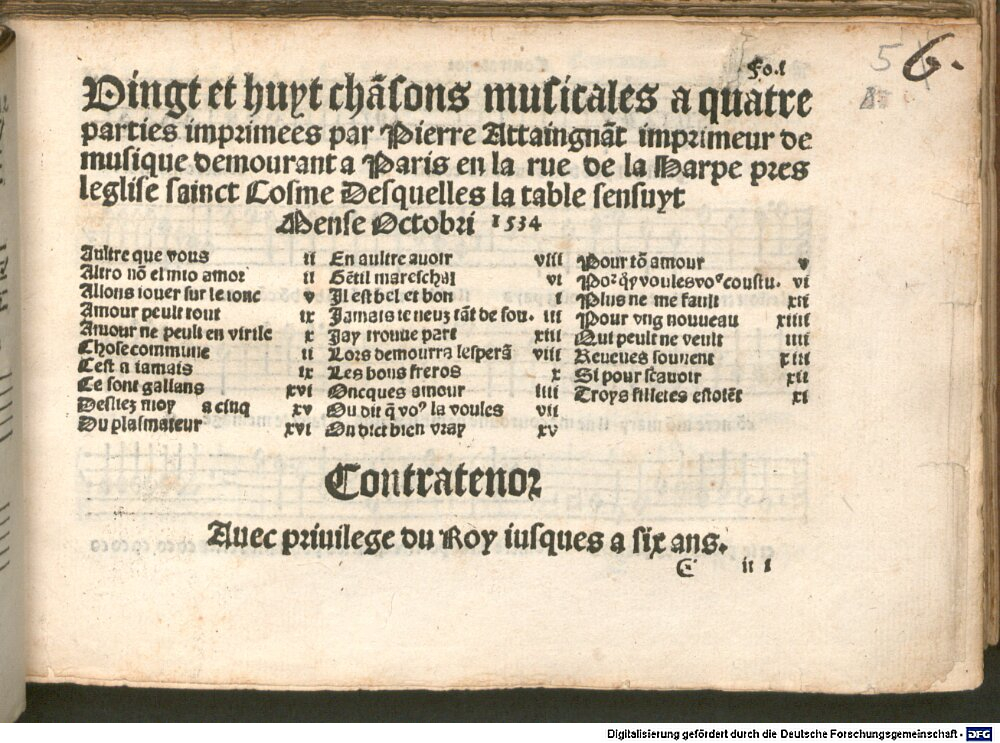 Fo.i
5 6.
Vingt et huyt chãsons musicales a quatre
parties imprimees par Pierre Attaingnãt imprimeur de
musique demourant a Paris en la rue de la Harpe pres
leglise sainct Cosme Desquelles la table sensuyt
Mense Octobri 1534
Aultre que vous ii
Altro nõ el mio amor ii
Allons iouer sur le ionc v
Amour peult tout ix
Amour ne peult en virile x
Chose commune ii
Cest a iamais ix
Ce sont gallans xvi
Desliez moy a cinq xv
Du plasmateur xvi
En aultre avoir viii
Gẽtil mareschal vi
Il est bel et bon i
Jamais ie neuz tãt de sou. iii
Jay trouve part xiii
Lors demourra lesperã viii
Les bons freros x
Oncques amour iiii
Ou dit q̃ voꝰ la voules vii
On dict bien vray xv
Pour tõ amour v
Poꝛ qͥ voules voꝰ coustu. vi
Plus ne me fault xii
Pour vng nouveau xiiii
Qui peult ne veult iiii
Reveues souvent xiii
Si pour scavoir xii
Troys filletes estoiẽt xi
Contratenor
Avec privilege du Roy iusques a six ans.
C ii i
Digitalisierung gefördert durch die Deutsche Forschungsgemeinschaft - DFG